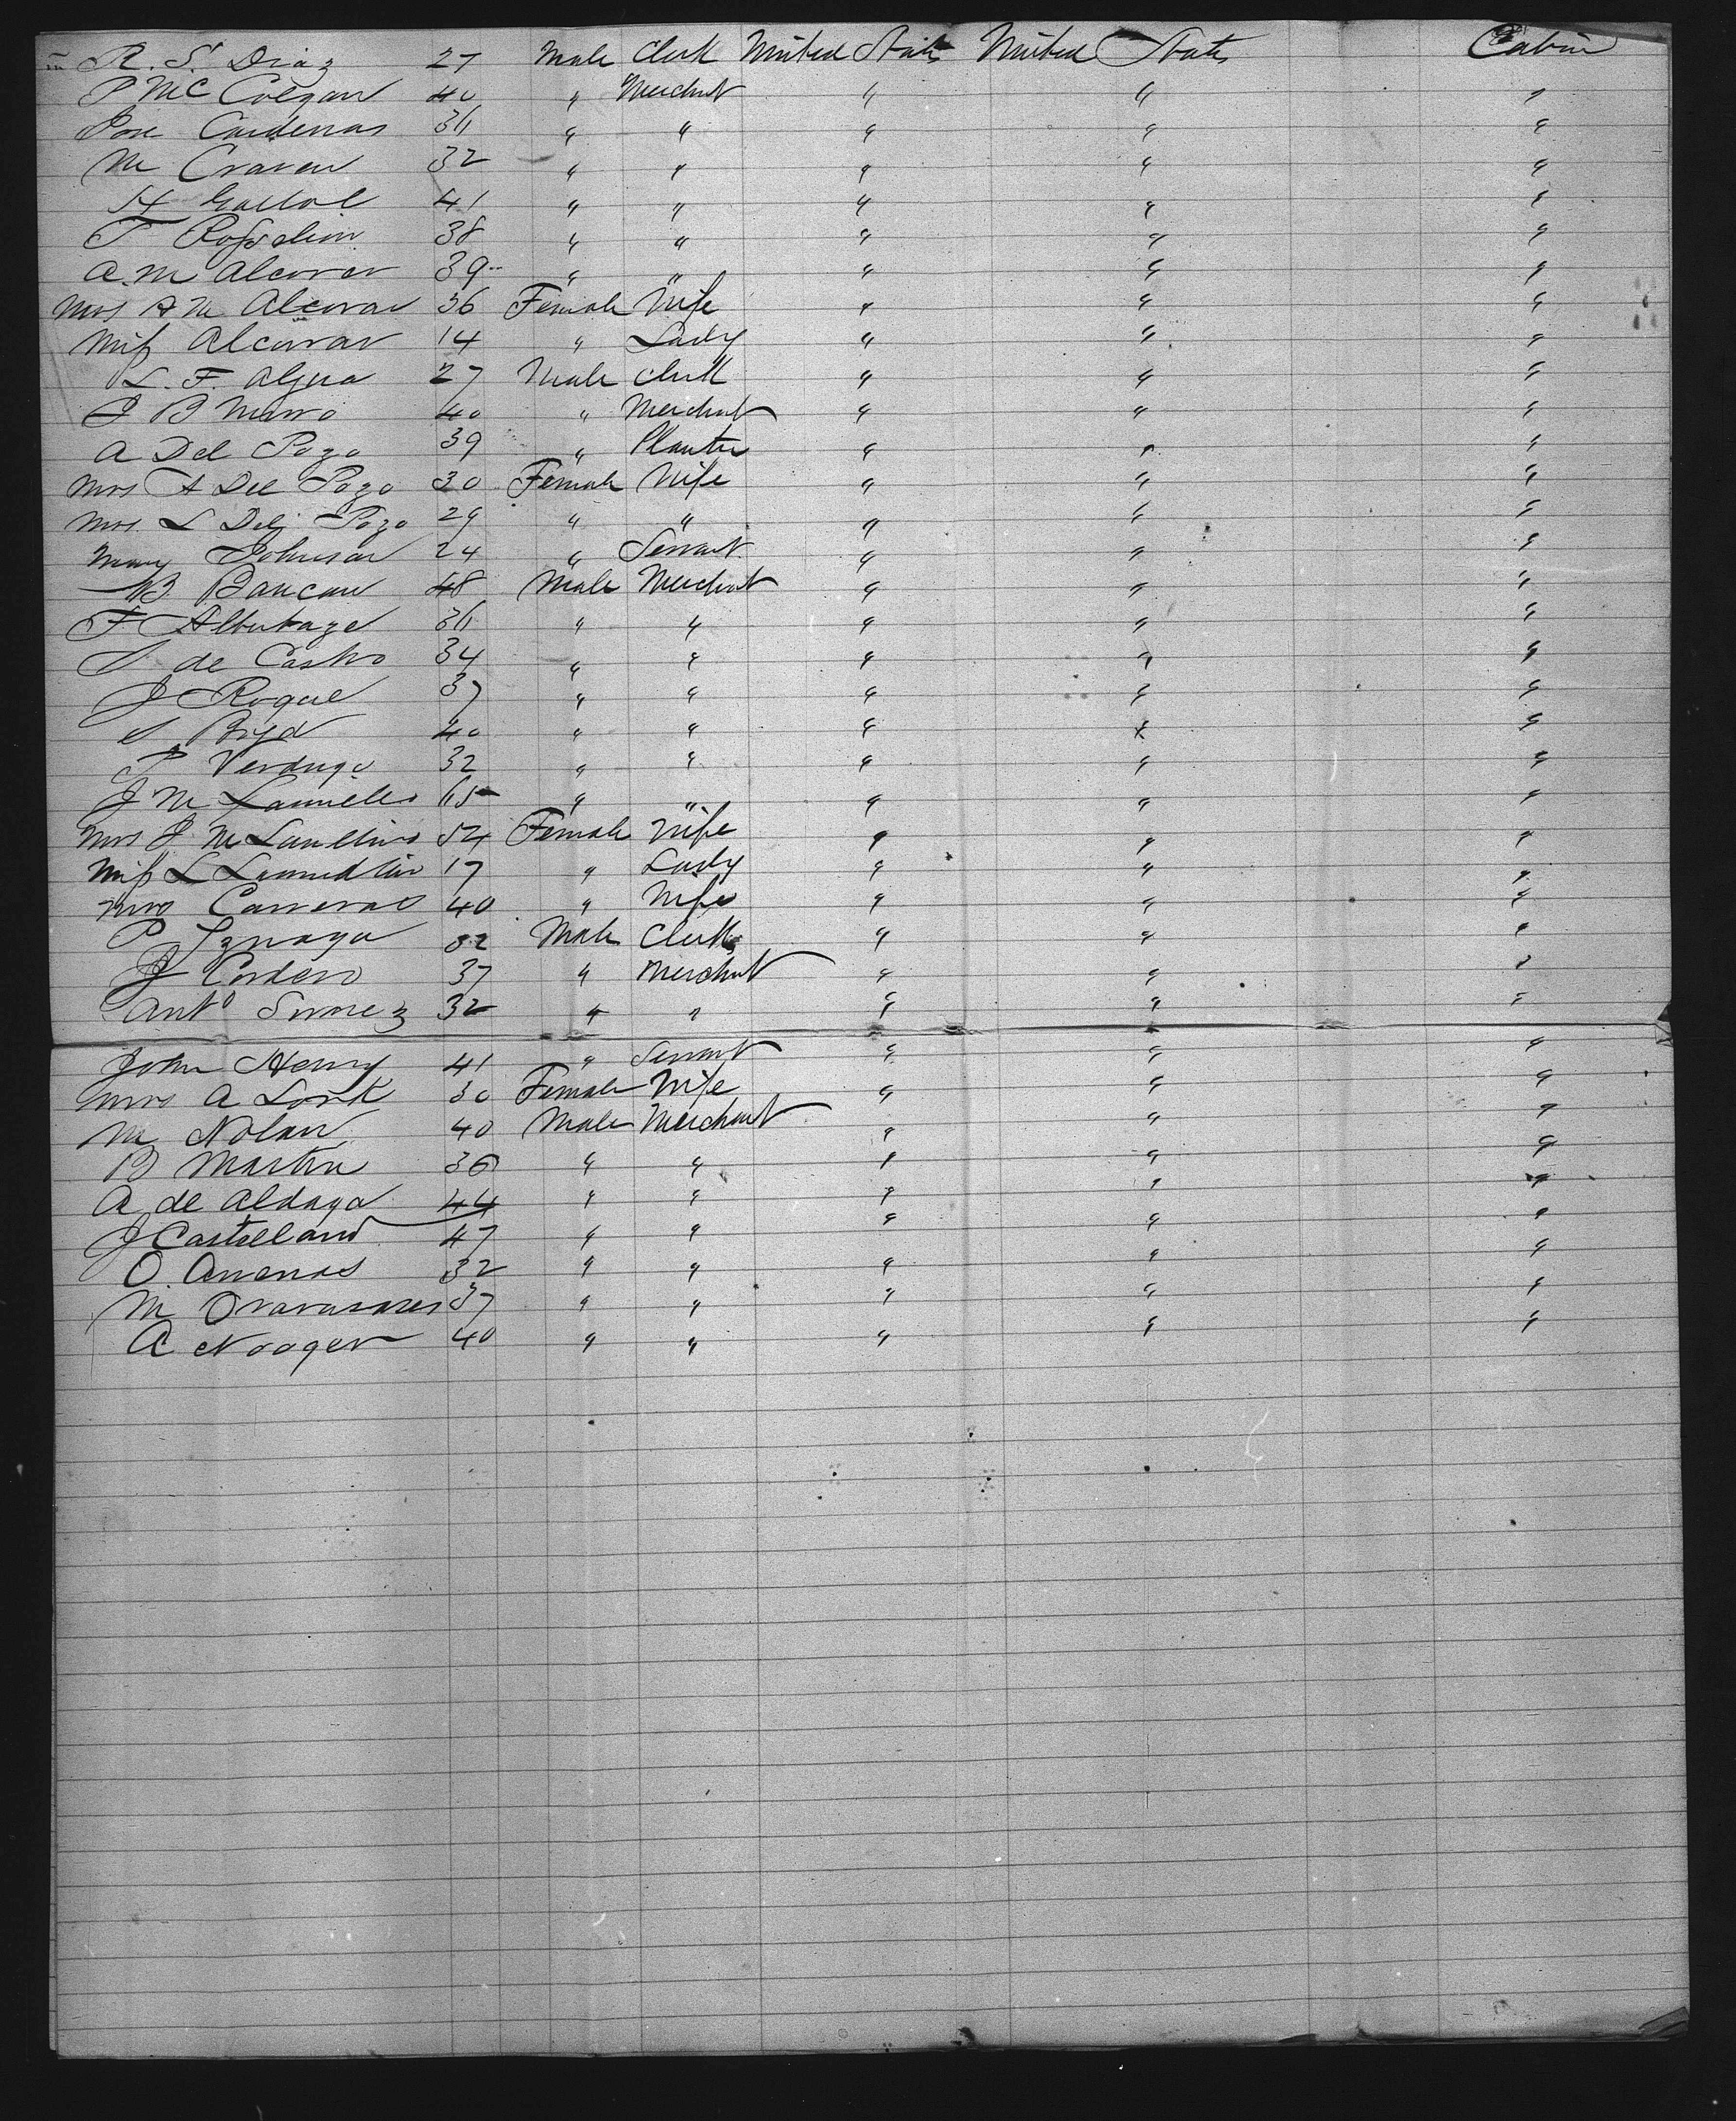 R. S. Diaz 27 Male Clerk United States United States Cabin
P McColgan 40 " Merchant " " "
Jose Cardenas 36 " " " " "
M Craven 32 " " " " "
H 41 " " " " "
F 38 " " " " "
A. M Alcovar 39 " " " " "
Mrs A M Alcovar 36 Female Wife " " "
Miss Alcovar 14 " Lady " " "
L. F. 27 Male Clerk " " "
J B 40 " Merchant " " "
A Del Pozo 39 " Planter " " "
Mrs A Del Pozo 30 Female Wife " " "
Mrs. L Del Pozo 29 " " " " "
Mary Johnson 24 " Servant " " "
B. Bancan 48 Male Merchant " " "
F 36 " " " " "
S de Castro 34 " " " " "
J Roque 37 " " " " "
S 40 " " " " "
P Verdugo 32 " " " " "
J M 65 " " " " "
Mrs J. M 54 Female Wife " " "
Miss L 17 " Lady " " "
Mrs Carreras 40 " Wife " " "
P Iznaga 32 Male Clerk " " "
J Cordero 37 " Merchant " " "
Anto Suarez 32 " " " " "
John Henry 41 " Servant " " "
Mrs A 30 Female Wife " " "
M Nolan 40 Male Merchant " " "
B Martin 36 " " " " "
A de Aldaya 44 " " " " "
J Castelland 47 " " " " "
O. Arenas 32 " " " " "
M 37 " " " " "
A 40 " " " " "